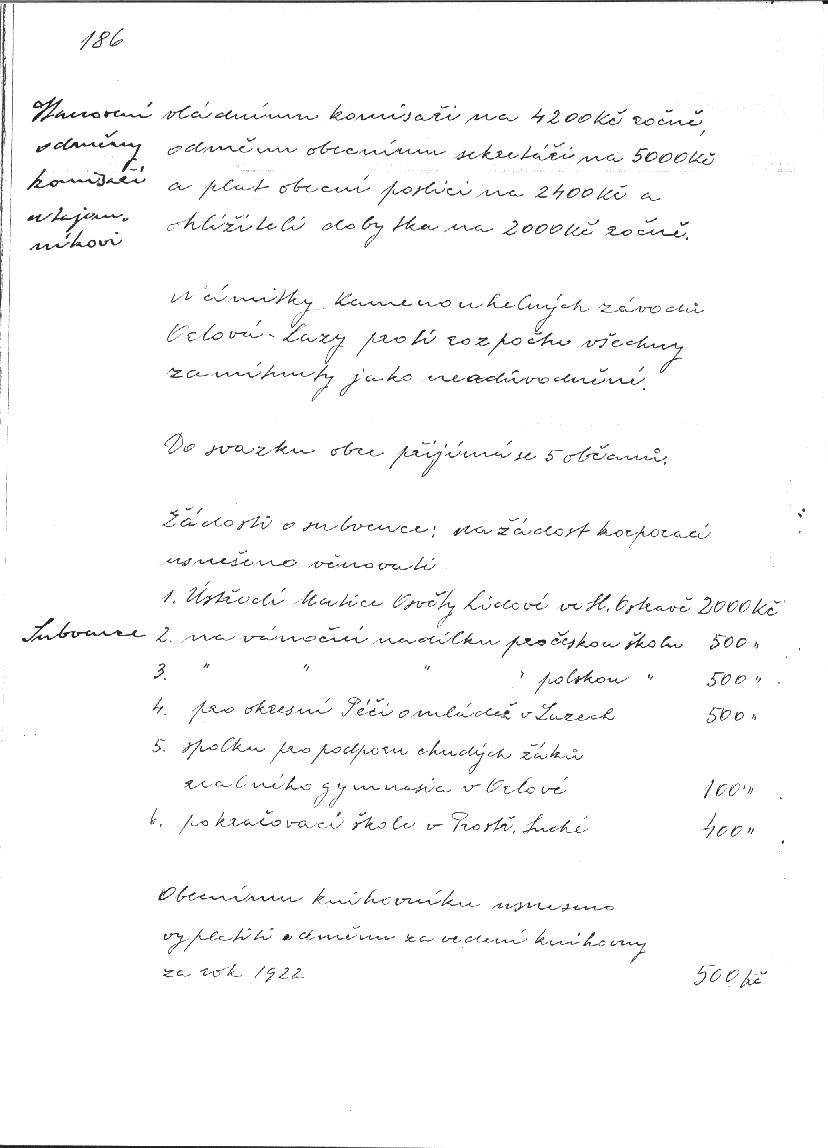 186
Stanovení
odměny
komisaři
a tajem-
níkovi
vládnímu komisaři na 4200 Kč ročně,
odměnu obecnímu sekretáři na 5000 Kč
a plat obecní poslici na 2400 Kč a
ohlížiteli dobytka na 2000 Kč ročně.
Námitky Kamenouhelných závodů
Orlová-Lazy proti rozpočtu všechny
zamítnuty jako neodůvodněné.
Do svazku obce přijímá se 5 občanů.
Žádosti o subvence: na žádost korporací
usnešeno věnovati
1. Ústředí Matice Osvěty Lidové ve Sl. Ostravě 2000 Kč
Subvence
2. na vánoční nadílku pro českou školu 500 "
3. " " " " polskou " 500 "
4. pro okresní Péči o mládež v Lazech 500 "
5. spolku pro podporu chudých žáků
realného gymnasia v Orlové 100 "
6. pokračovací škole v Prostř. Suché 400 "
Obecnímu knihovníku usneseno
vyplatiti odměnu za vedení knihovny
za rok 1922 500 Kč